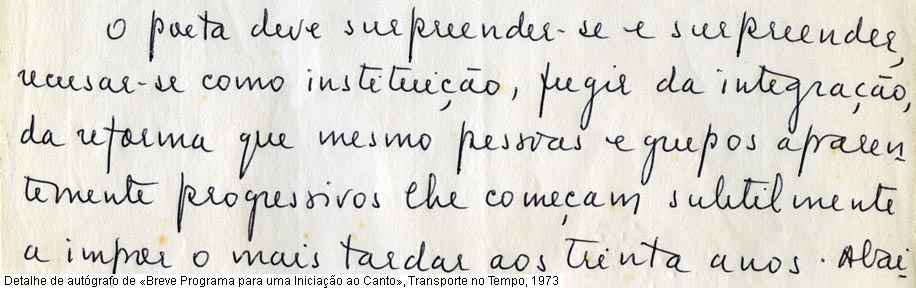 O poeta deve surpreender-se e surpreender,
recusar-se como instituição, fugir da integração,
da reforma que mesmo pessoas e grupos aparen-
temente progressivos lhe começam subtilmente
a impor o mais tardar aos trinta anos. Abai-
Detalhe de autógrafo de «Breve Programa para uma Iniciação ao Canto», Transporte no Tempo, 1973